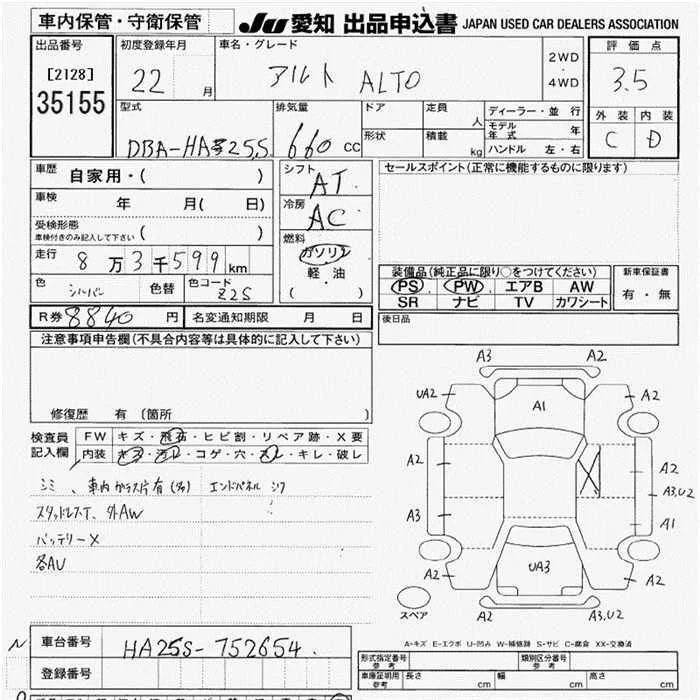 車内保管・守衛保管
JU 愛知 出品申込書 JAPAN USED CAR DEALERS ASSOCIATION
出品番号
[2128]
35155
初度登録年月
22 月
車名・グレード
アルト ALTO
2WD
・
4WD
評価点
3.5
外装 内装
C D
型式
DBA-HA25S
排気量
660 CC
ドア
形状
定員
人
積載
kg
ディーラー・並行
モデル年式 年
ハンドル 左・右
車歴 自家用・( )
車検 年 月( 日)
受検形態
車検付きのみ記入して下さい ( )
走行 8万3千599km
色 シルバー 色替 色コード Z2S
シフト
AT
冷房
AC
燃料
ガソリン
軽・油
( )
セールスポイント(正常に機能するものに限ります)
装備品(純正品に限り○をつけてください)
PS PW エアB AW
SR ナビ TV カワシート
新車保証書
有・無
R券 8840 円 名変通知期限 月 日
後日品
注意事項申告欄(不具合内容等は具体的に記入して下さい)
修復歴 有 〔箇所 〕
検査員記入欄
FW キズ・飛石・ヒビ割・リペア跡・X要
内装 キズ・汚レ・コゲ・穴・スレ・キレ・破レ
シミ、車内ガラス片有(多) エンドパネル シワ
スタッドレスT、外AW
バッテリーX
各AU
A3 A2
UA2 A1 A2
A2 A2
A3,U2
A3 A1
A2 UA3 A2
A2 A3,U2
スペア
A-キズ E-エクボ U-凹み W-補修跡 S-サビ C-腐食 XX-交換済
車台番号 HA25S-752654
登録番号
形式指定番号 参考
類別区分番号 参考
車庫証明用 参考 長さ cm 幅 cm 高さ cm